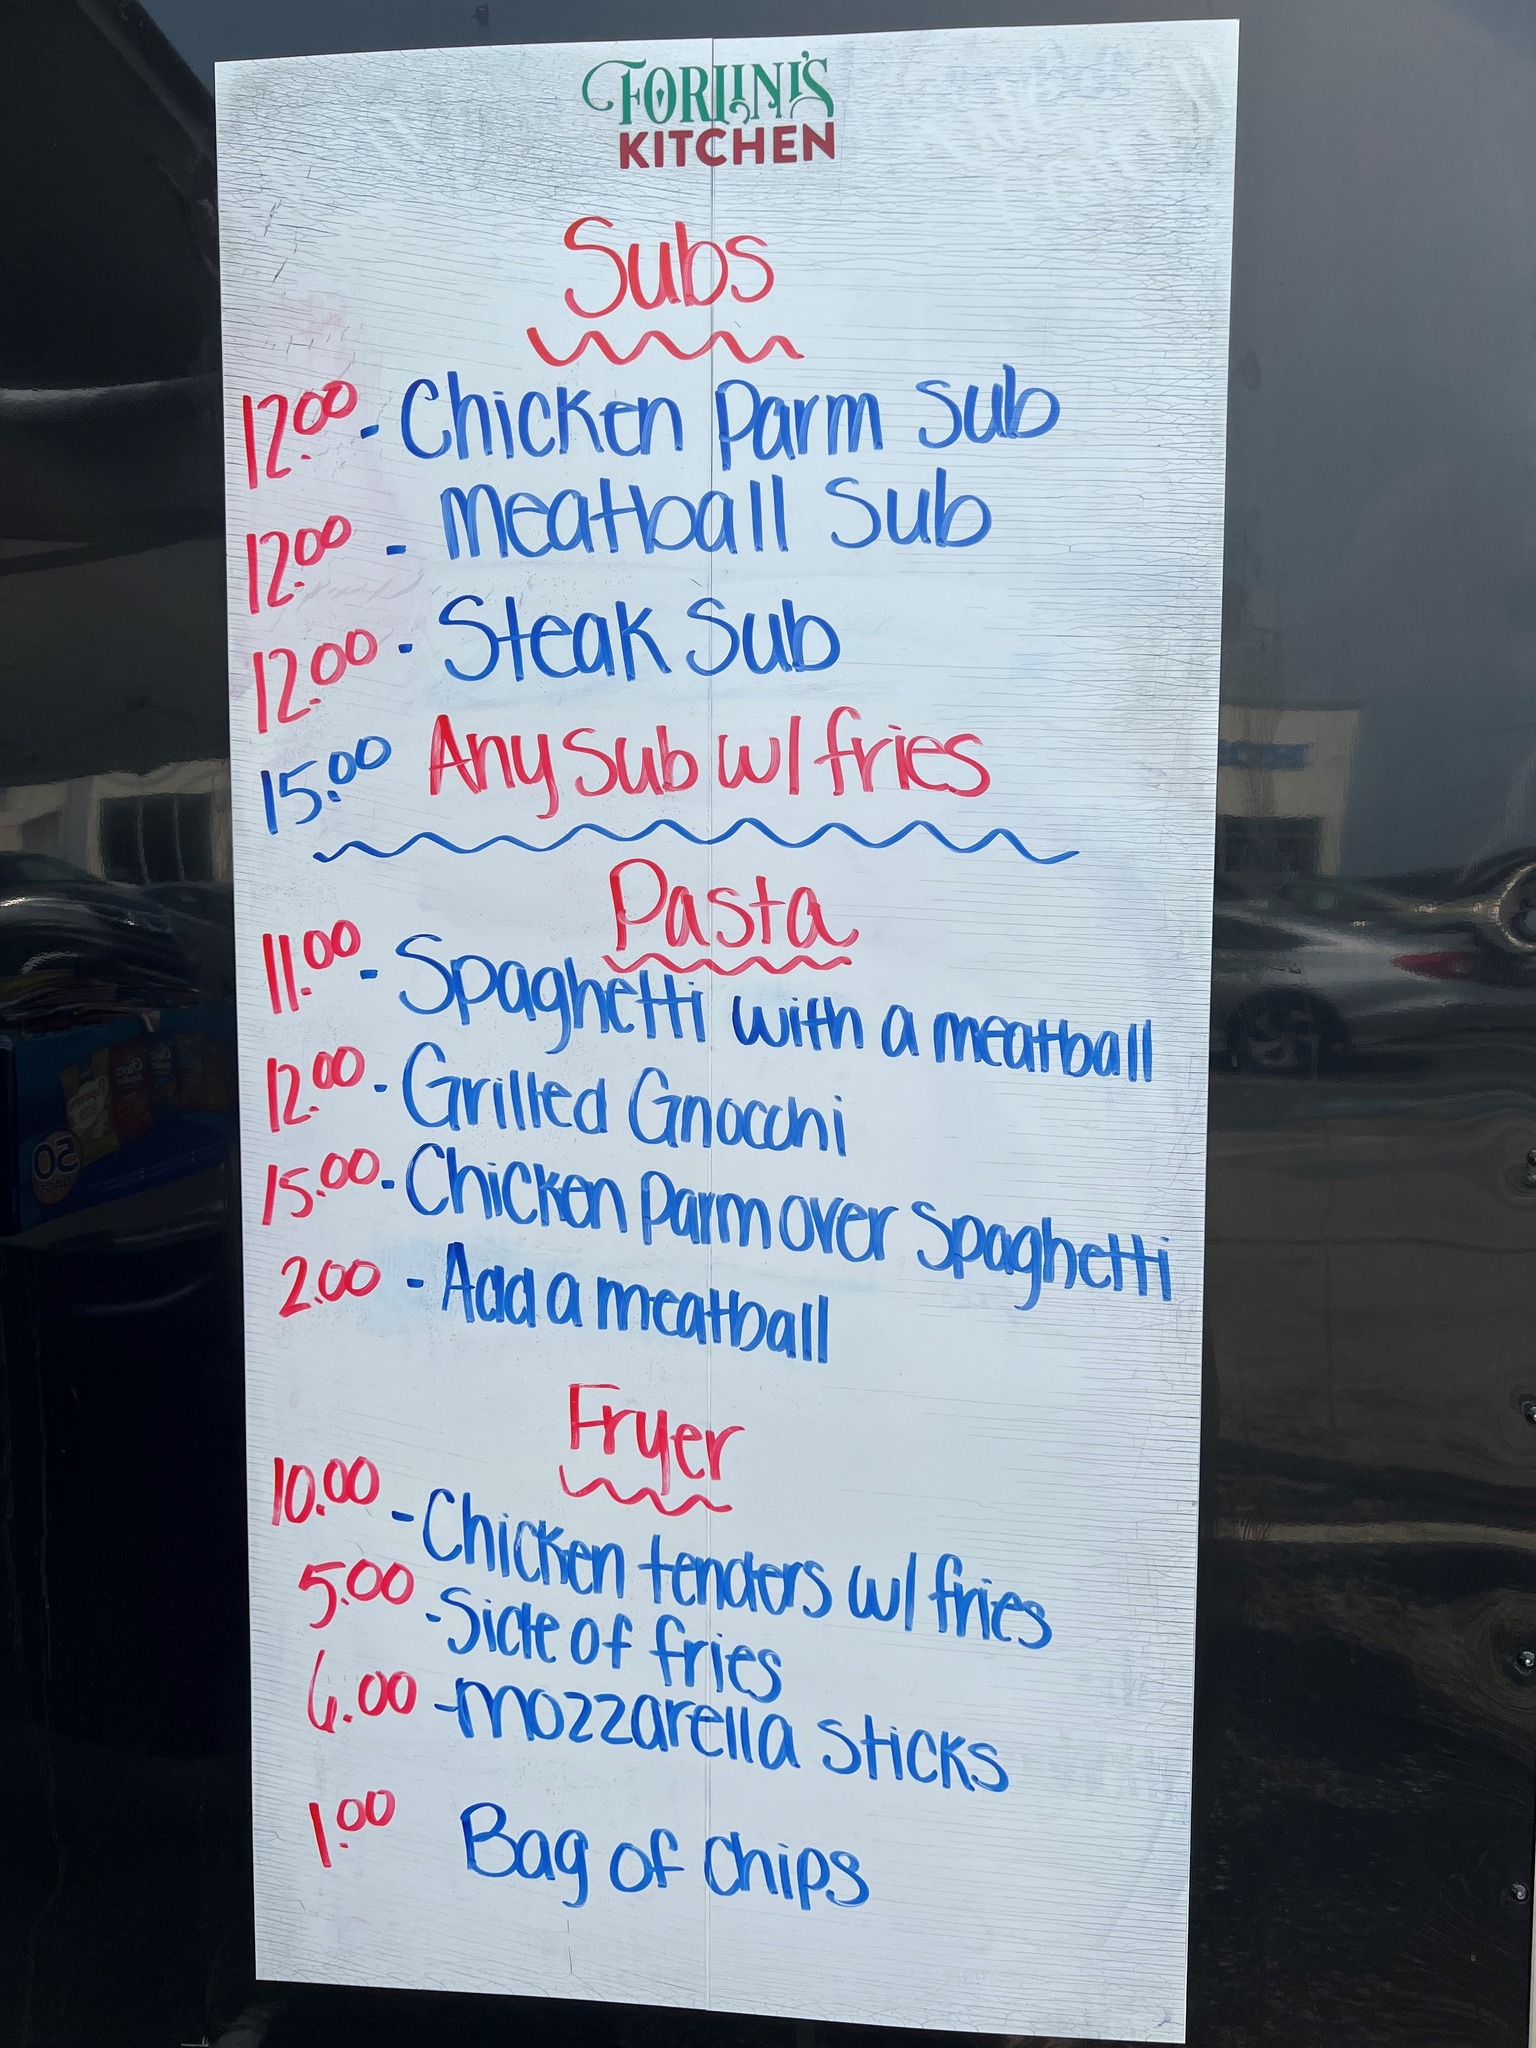 FORLINI'S
KITCHEN
Subs
12.00 - Chicken Parm Sub
12.00 - meatball Sub
12.00 - Steak Sub
15.00 Any Sub w/ fries
Pasta
11.00 - Spaghetti with a meatball
12.00 - Grilled Gnocchi
15.00 - Chicken Parm over Spaghetti
2.00 - Add a meatball
Fryer
10.00 - Chicken tenders w/ fries
5.00 - Side of fries
6.00 - mozzarella sticks
1.00 Bag of chips
50